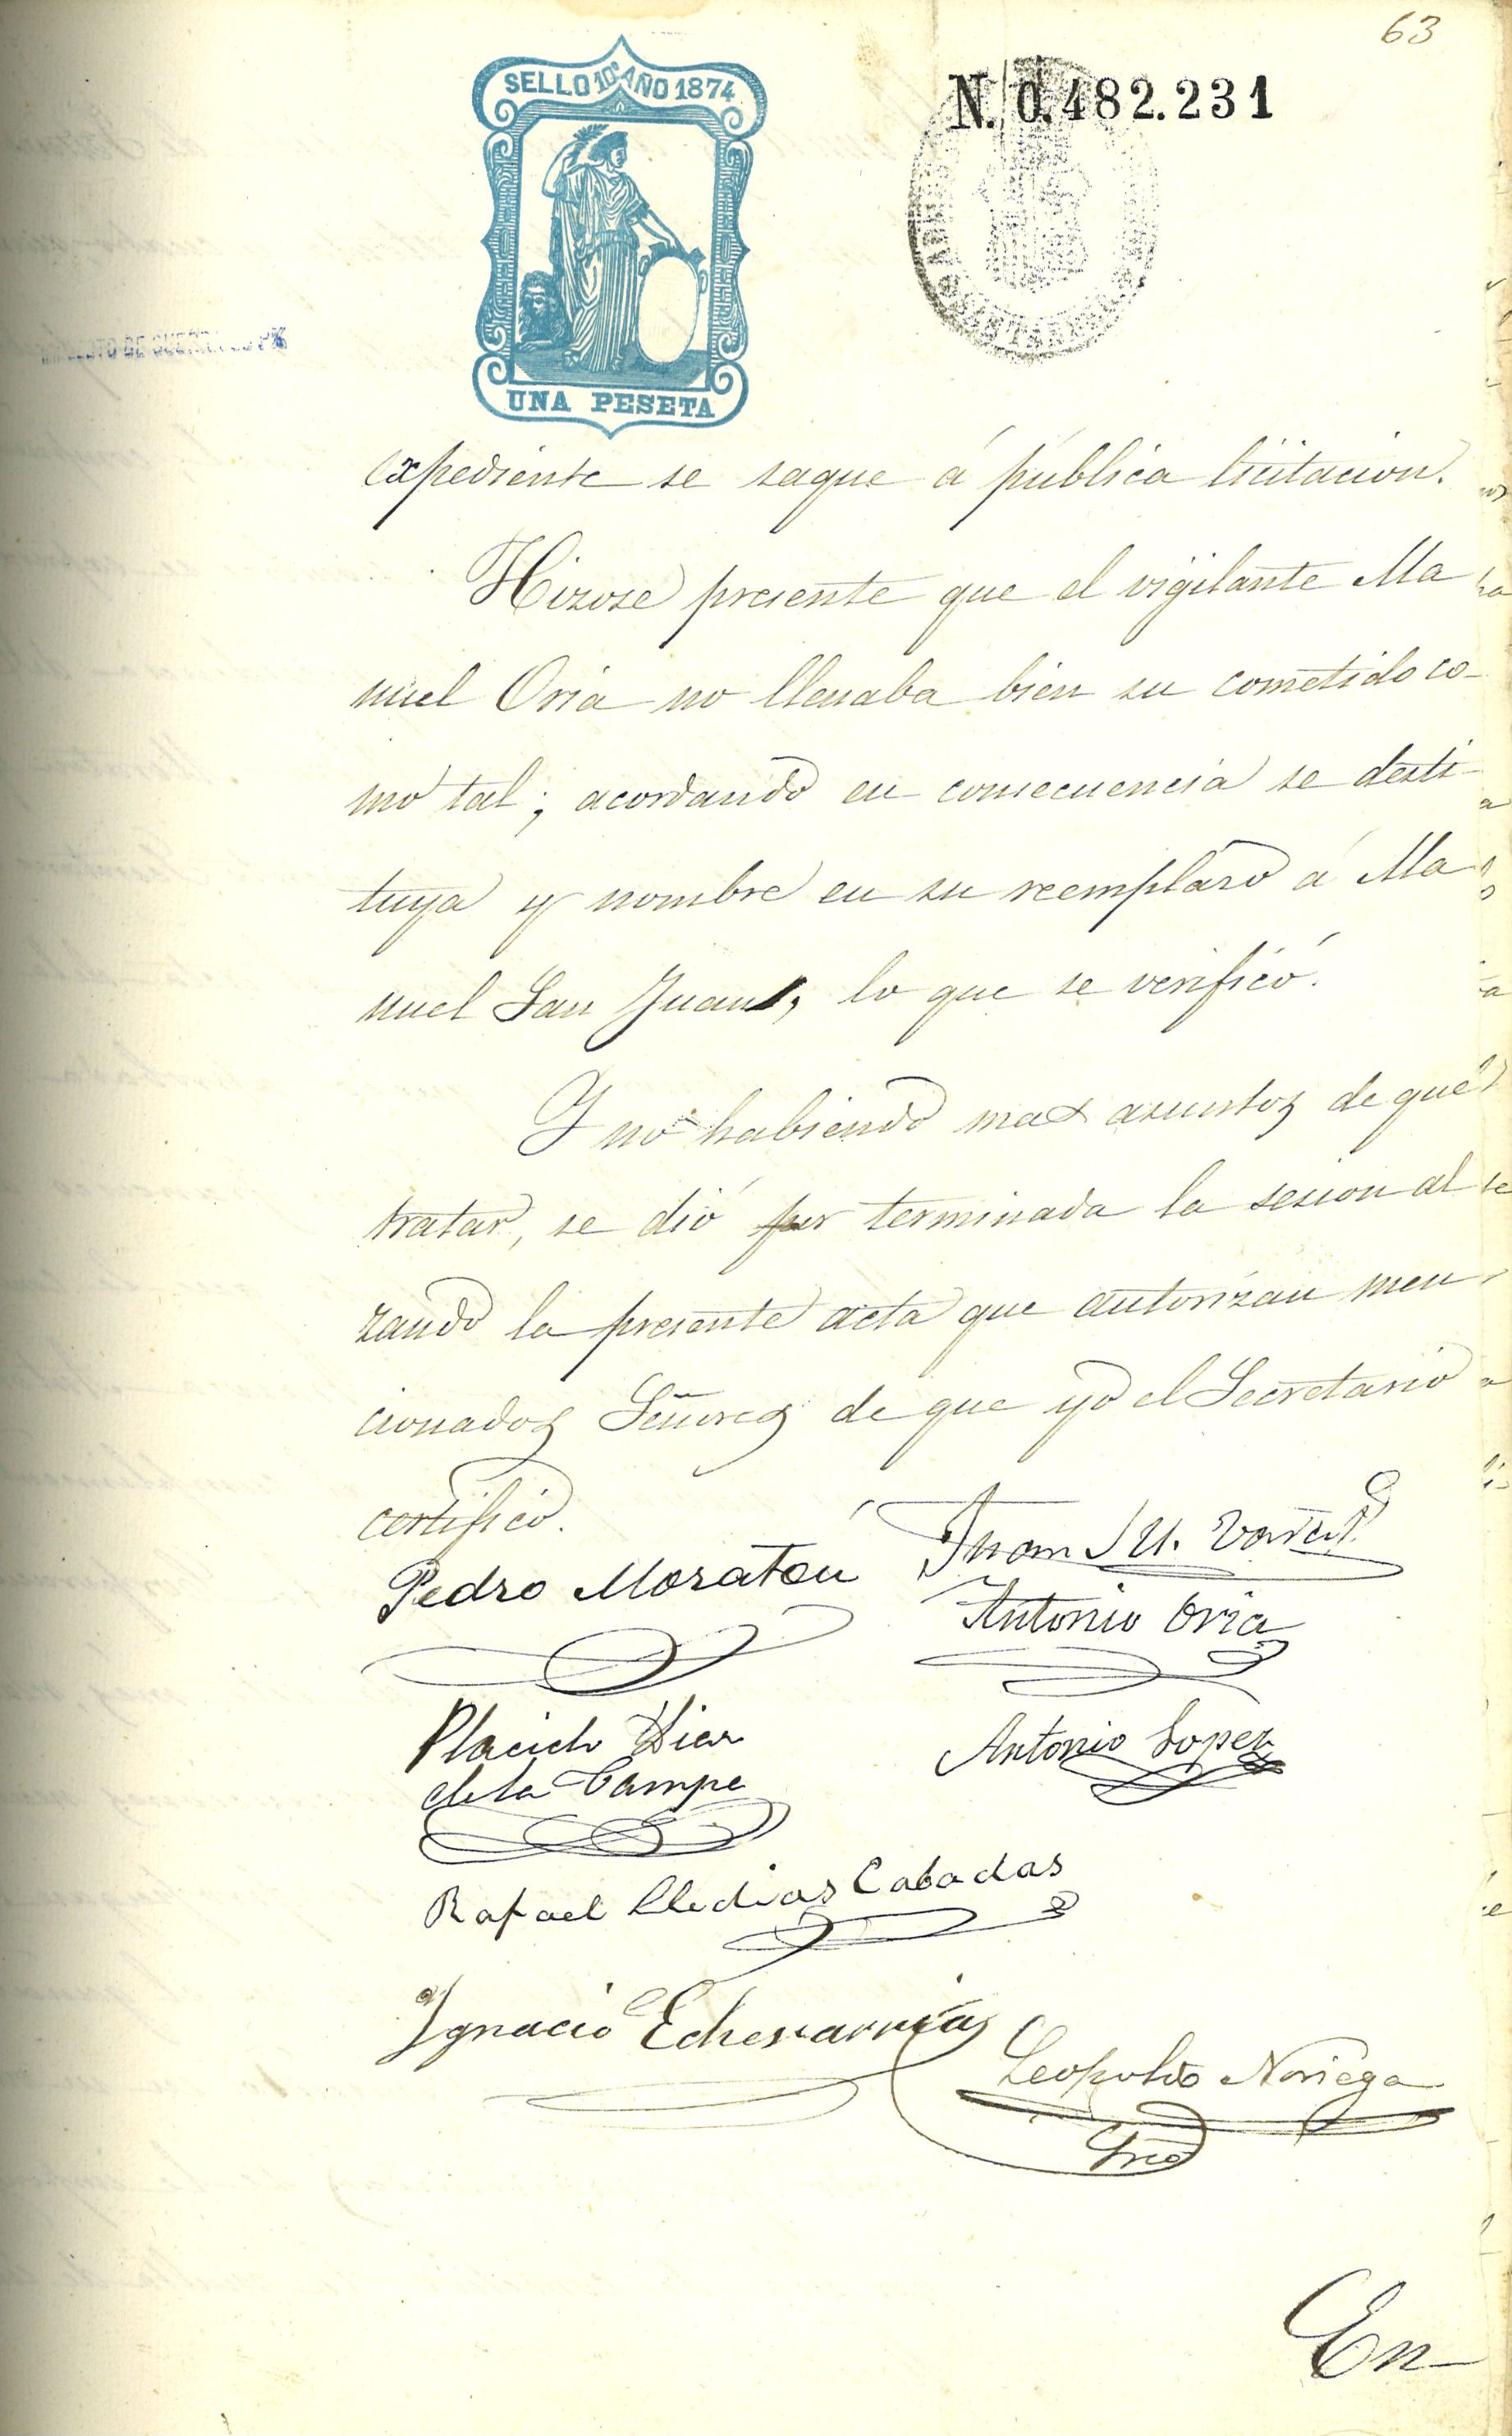 63
SELLO 10º AÑO 1874
N. 0.482.231
UNA PESETA
expediente se saque á pública licitacion.
Hizose presente que el vigilante Ma
nuel Oria no llenaba bien su cometido co-
mo tal; acordando en consecuencia se desti-
tuya y nombre en su reemplazo á Ma
nuel San Juan, lo que se verificó.
Y no habiendo mas asuntos de que
tratar, se dió por terminada la sesion al
zando la presente acta que autorizan men
cionados Señores de que yo el Secretario
certifico.
Pedro Moraton
Juan M.
Antonio Oria
Placido Diez
de la Campa
Antonio Lopez
Rafael Lledias Cabadas
Ignacio Echevarria
Leopoldo Noriega
Srio
En